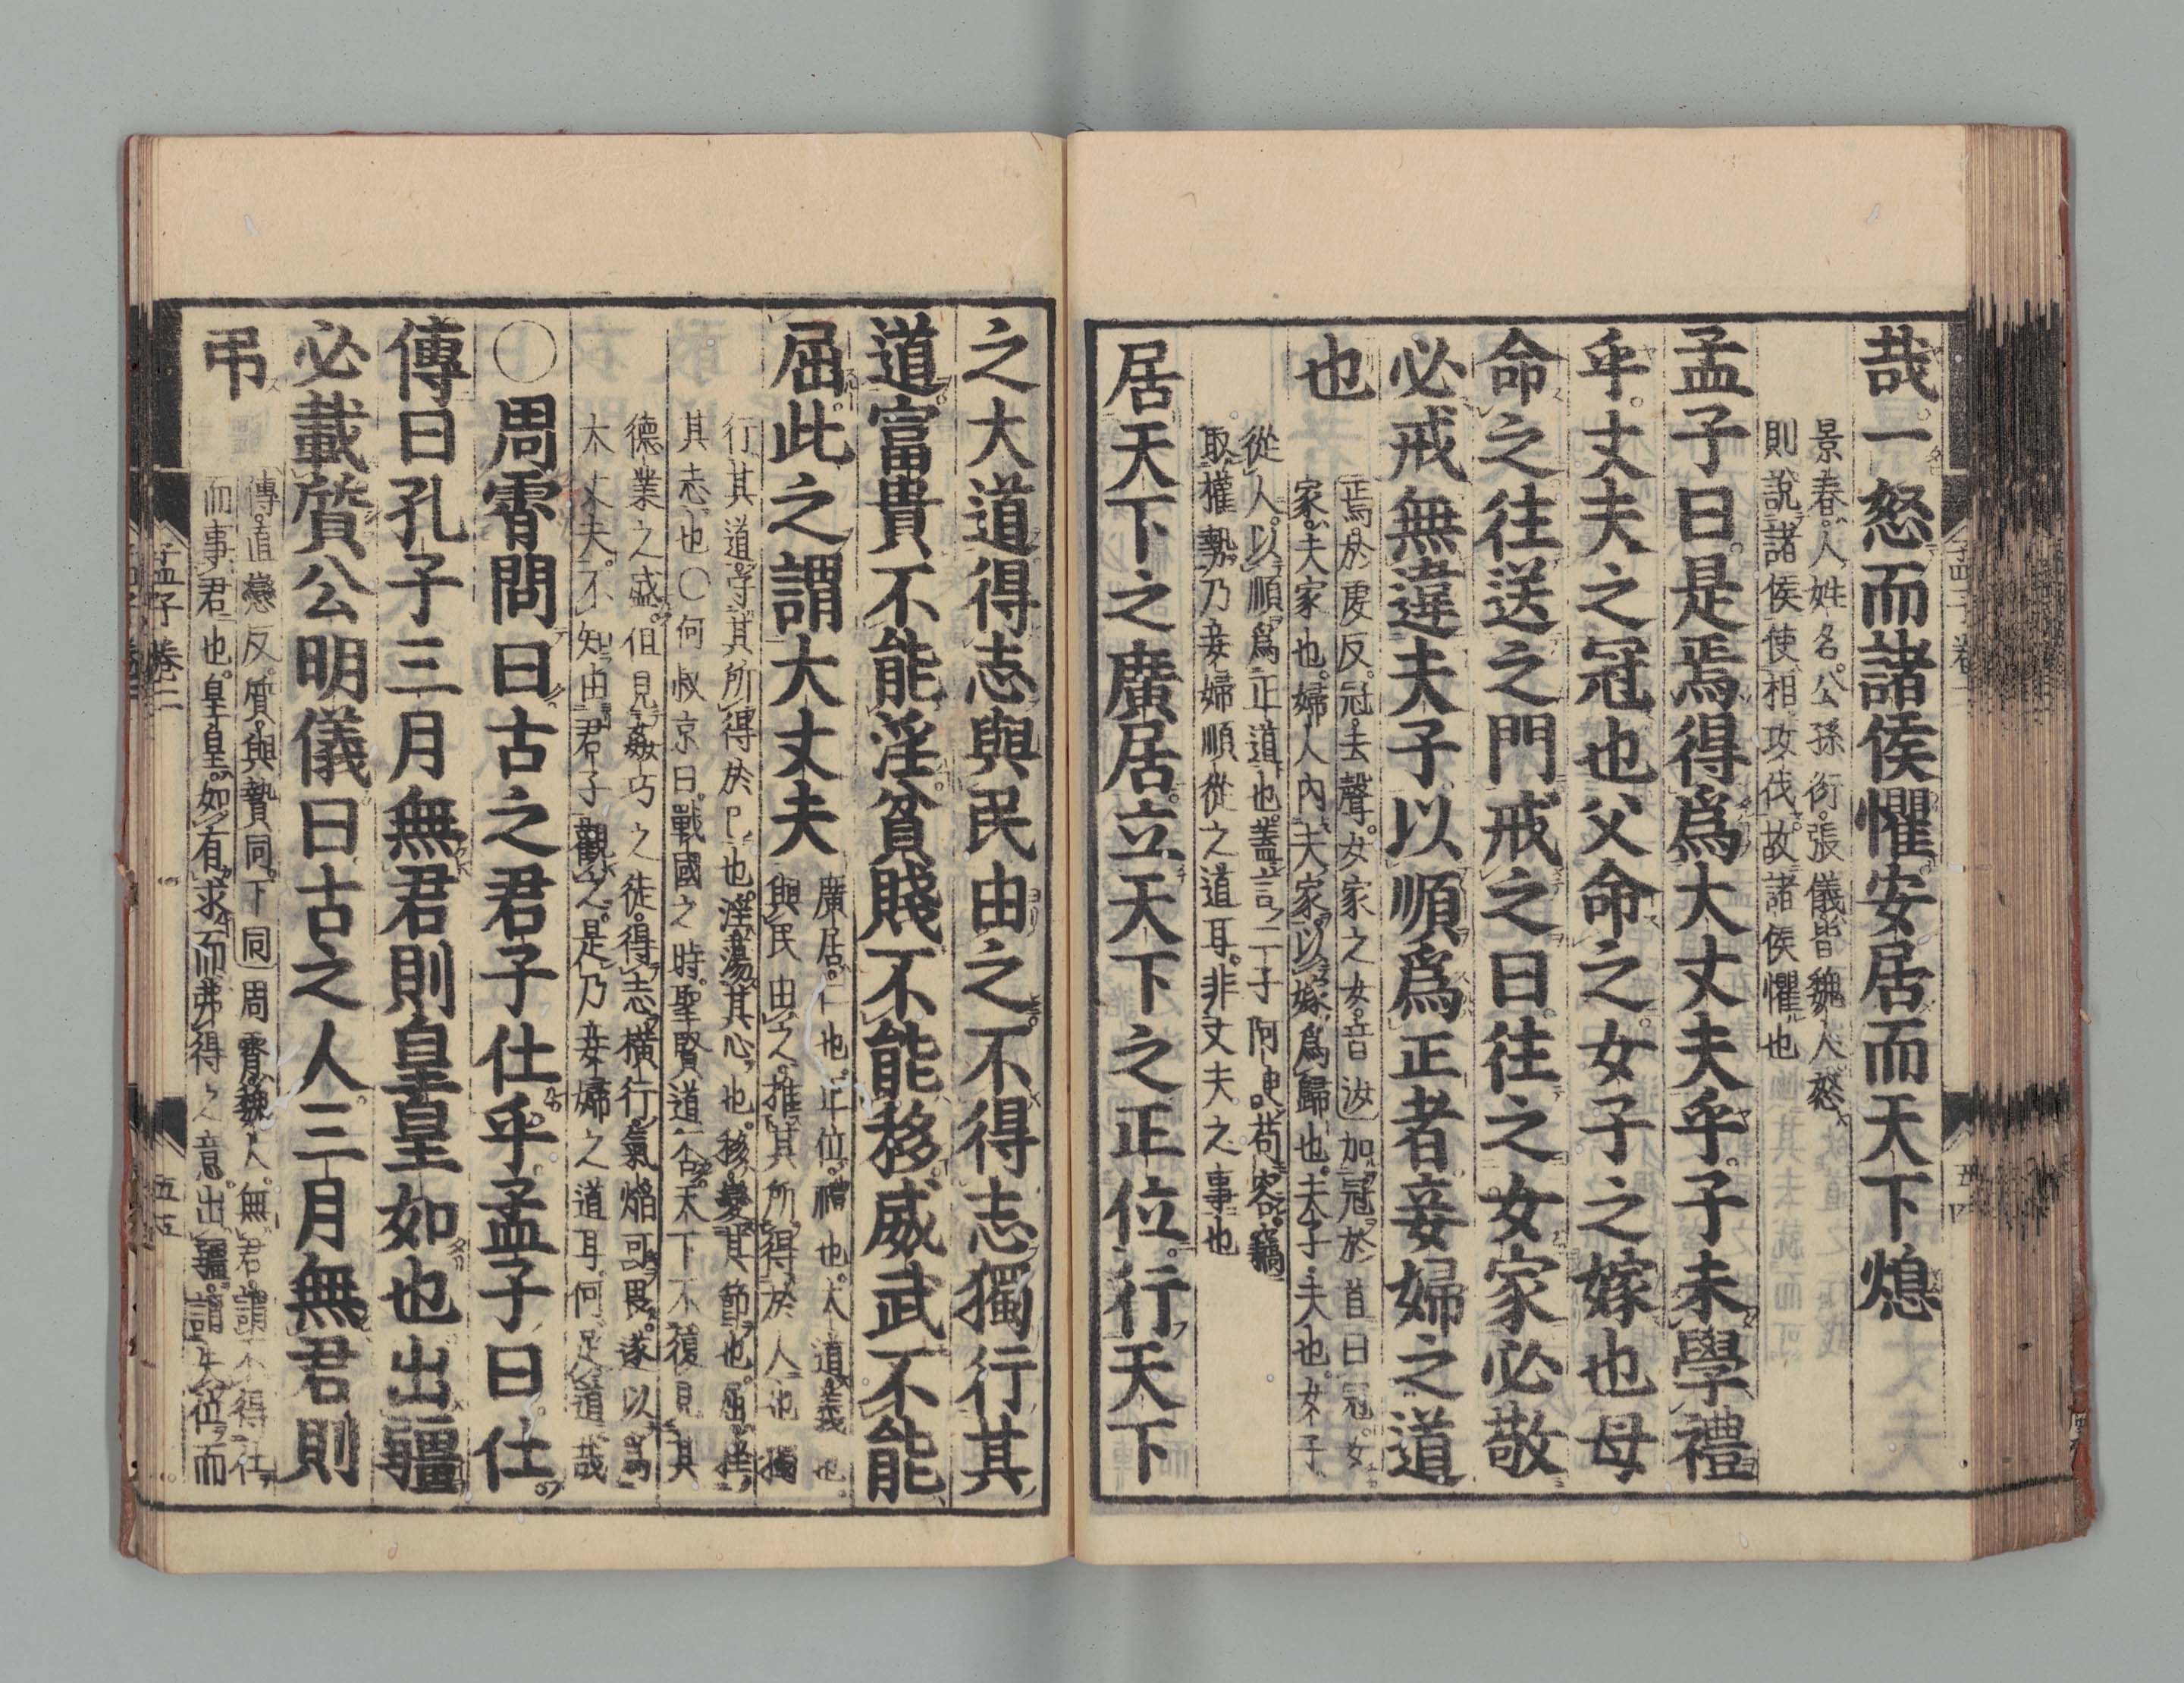 哉一怒而諸侯懼安居而天下熄
景春人姓名公孫衍張儀皆魏人怒
則說諸侯使相攻伐故諸侯懼也
孟子曰是焉得爲大丈夫乎子未學禮
乎丈夫之冠也父命之女子之嫁也母
命之往送之門戒之曰往之女家必敬
必戒無違夫子以順爲正者妾婦之道
也
焉於虔反冠去聲女家之女音汝加冠於首曰冠女
家夫家也婦人內夫家以嫁爲歸也夫子夫也女子
從人以順爲正道也蓋言二子阿諛苟容竊
取權勢乃妾婦順從之道耳非丈夫之事也
居天下之廣居立天下之正位行天下
之大道得志與民由之不得志獨行其
道富貴不能淫貧賤不能移威武不能
屈此之謂大丈夫
廣居仁也正位禮也大道義也
與民由之推其所得於人也獨
行其道守其所得於己也淫蕩其心也移變其節也屈挫
其志也〇何叔京曰戰國之時聖賢道否天下不復見其
德業之盛但見姦巧之徒得志橫行氣焰可畏遂以爲
大丈夫不知由君子觀之是乃妾婦之道耳何足道哉
〇周霄問曰古之君子仕乎孟子曰仕
傳曰孔子三月無君則皇皇如也出疆
必載質公明儀曰古之人三月無君則
弔
傳直戀反質與贄同下同周霄魏人無君謂不得仕
而事君也皇皇如有求而弗得之意出疆謂失位而
孟子卷二
五五